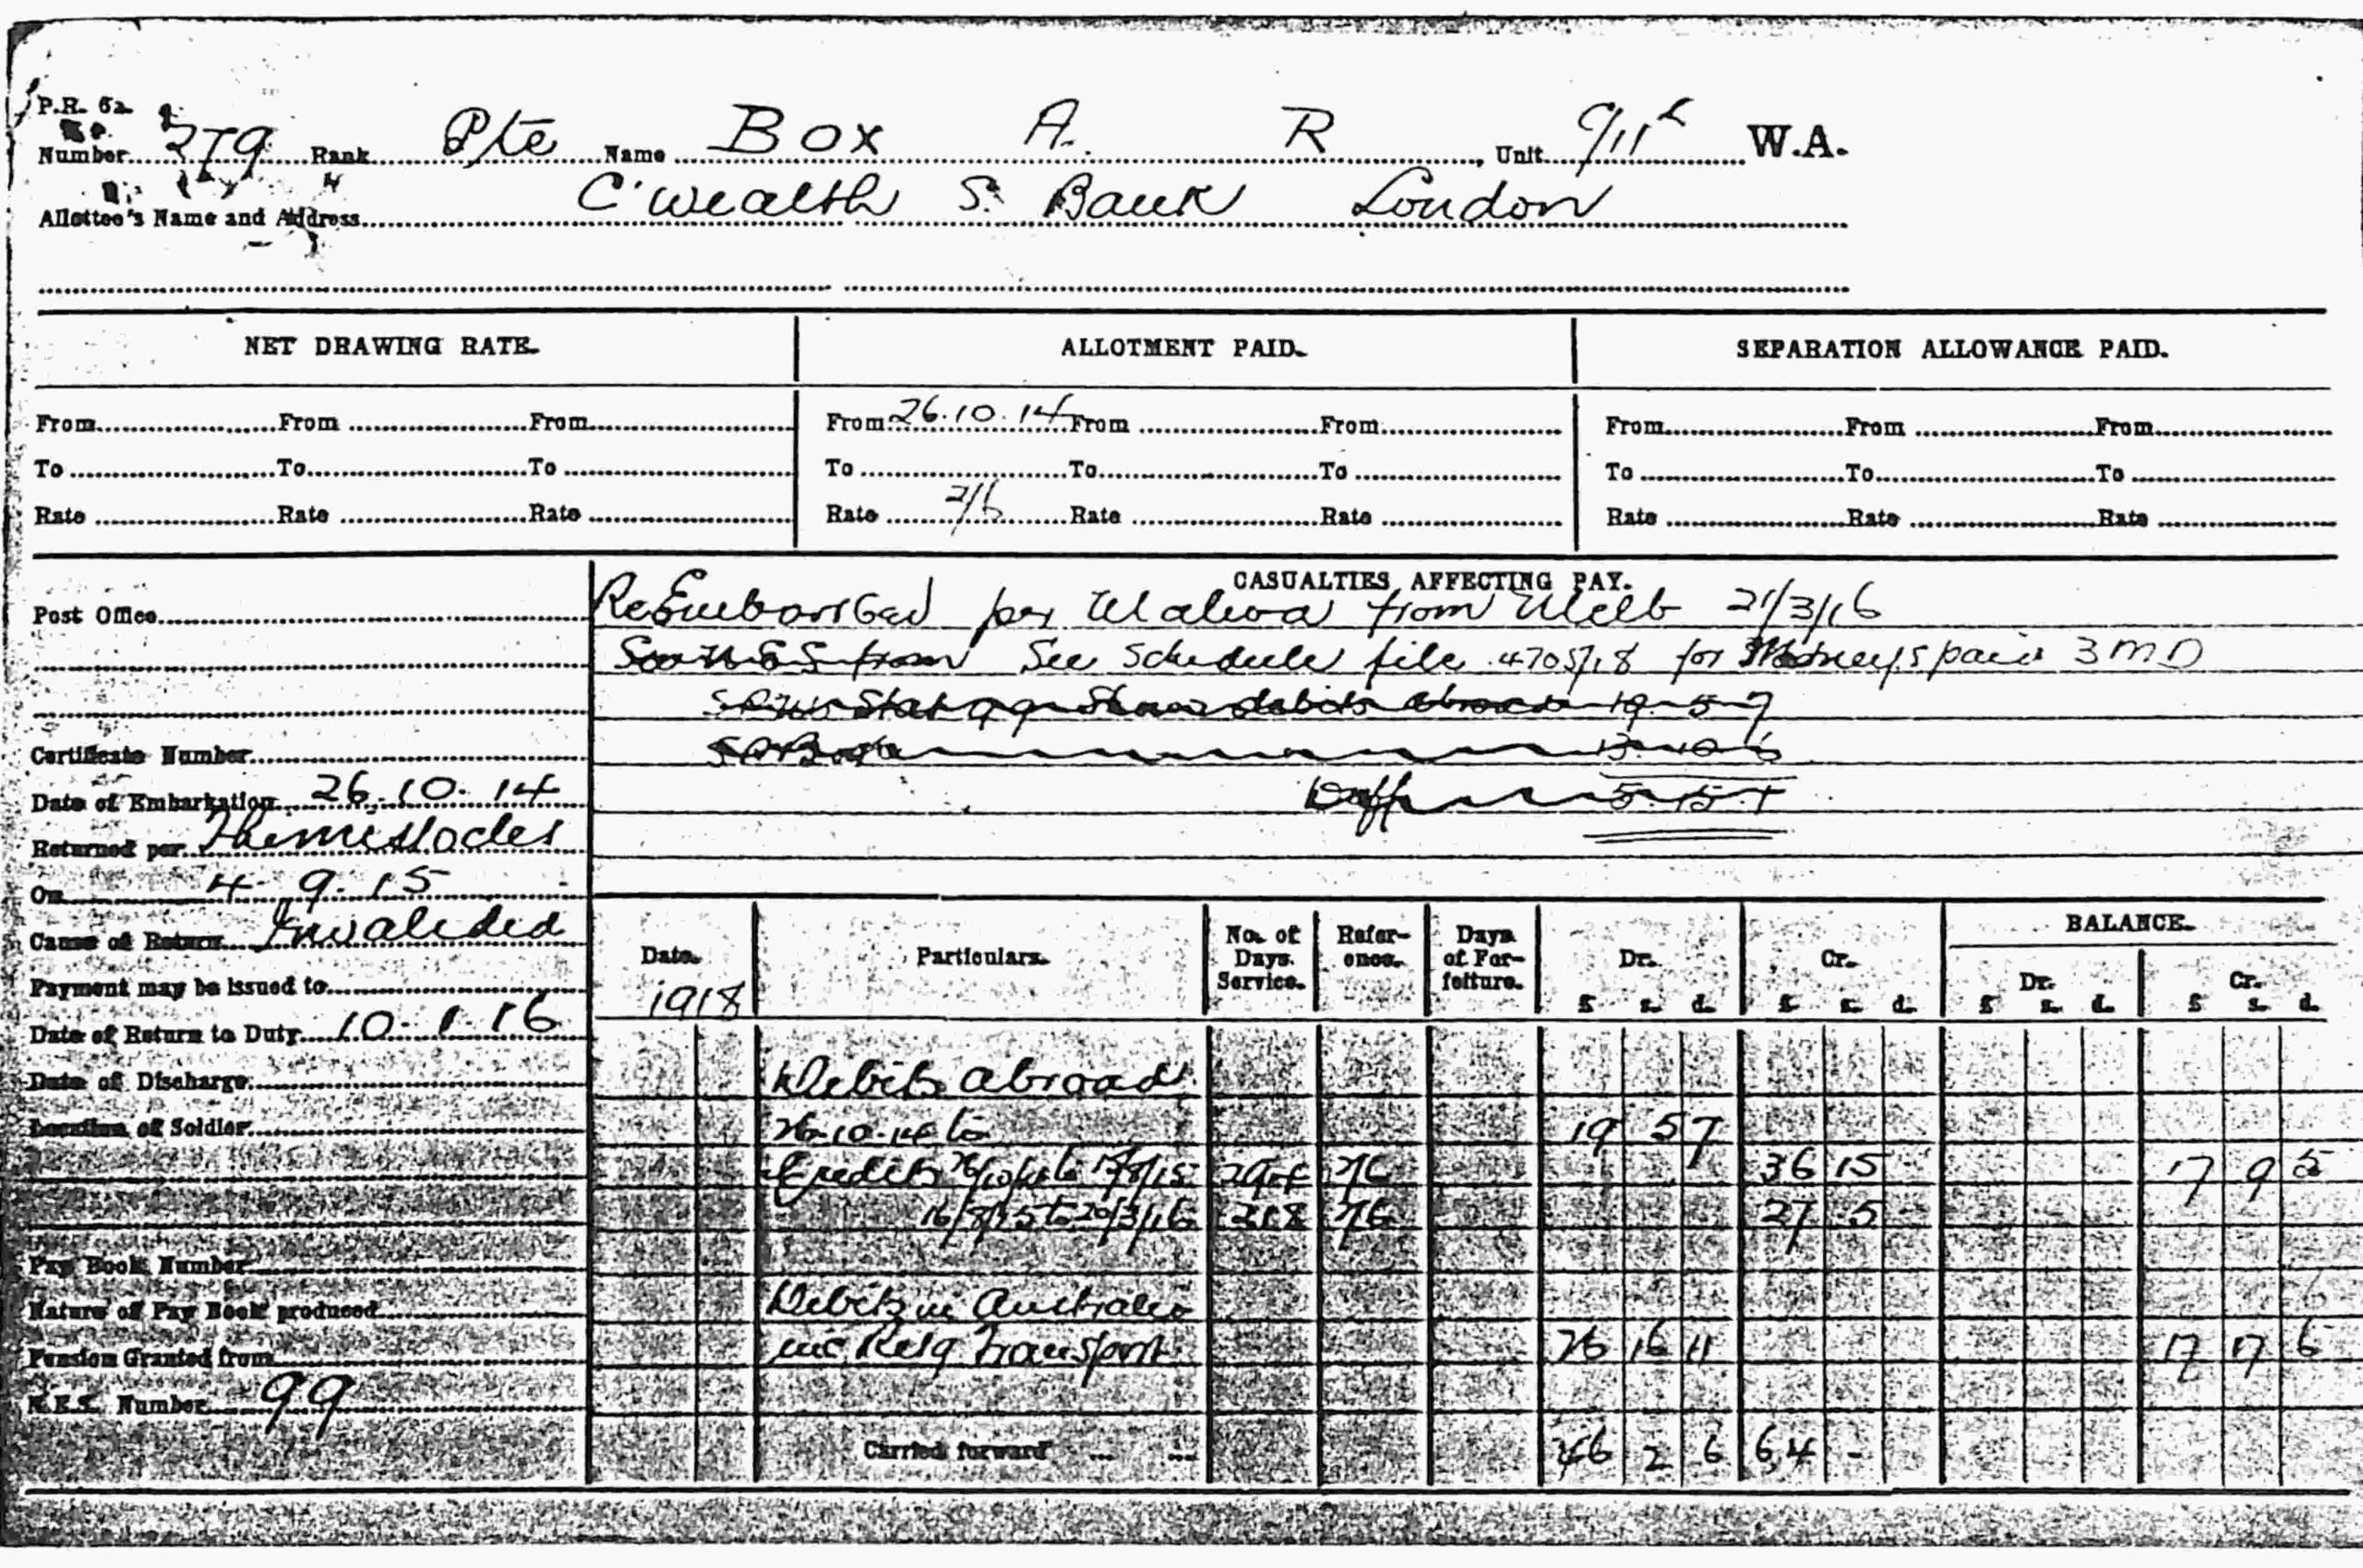 P.R. 6a.
Number 279 Rank Pte Name Box A. R Unit C/11th W.A.
Allottee's Name and Address C'wealth S. Bank London
NET DRAWING RATE. ALLOTMENT PAID. SEPARATION ALLOWANCE PAID.
From From From From 26.10.14 From From From From From
To To To To To To To To To
Rate Rate Rate Rate 2/6 Rate Rate Rate Rate Rate
CASUALTIES AFFECTING PAY.
Post Office ReEmbarked per Malwa from Melb 21/3/16
from See Schedule file 4705/18 for Moneys paid 3 M D
debits abroad 19-5-7
Certificate Number 13-10-6
Date of Embarkation 26.10.14 Diff 5-15-1
Returned per Themistocles
On 4-9-15
Cause of Return Invalided
Payment may be issued to
Date of Return to Duty 10-1-16
Date of Discharge
Location of Soldier
Pay Book Number
Nature of Pay Book produced
Pension Granted from
N.E.S. Number 99
Date. Particulars. No. of Days Service. Reference. Days of Forfeiture. Dr. Cr. BALANCE.
Dr. Cr.
1918 £ s. d. £ s. d. £ s. d. £ s. d.
Debits abroad
26-10-14 to 19 5 7
Credits 26/10/14 to 15/8/15 294 2/6 36 15 17 9 5
16/8/15 to 20/3/16 218 2/6 27 5
Debits in Australia
inc Transport 26 16 11 17 17 6
Carried forward ... ... 46 2 6 64 -